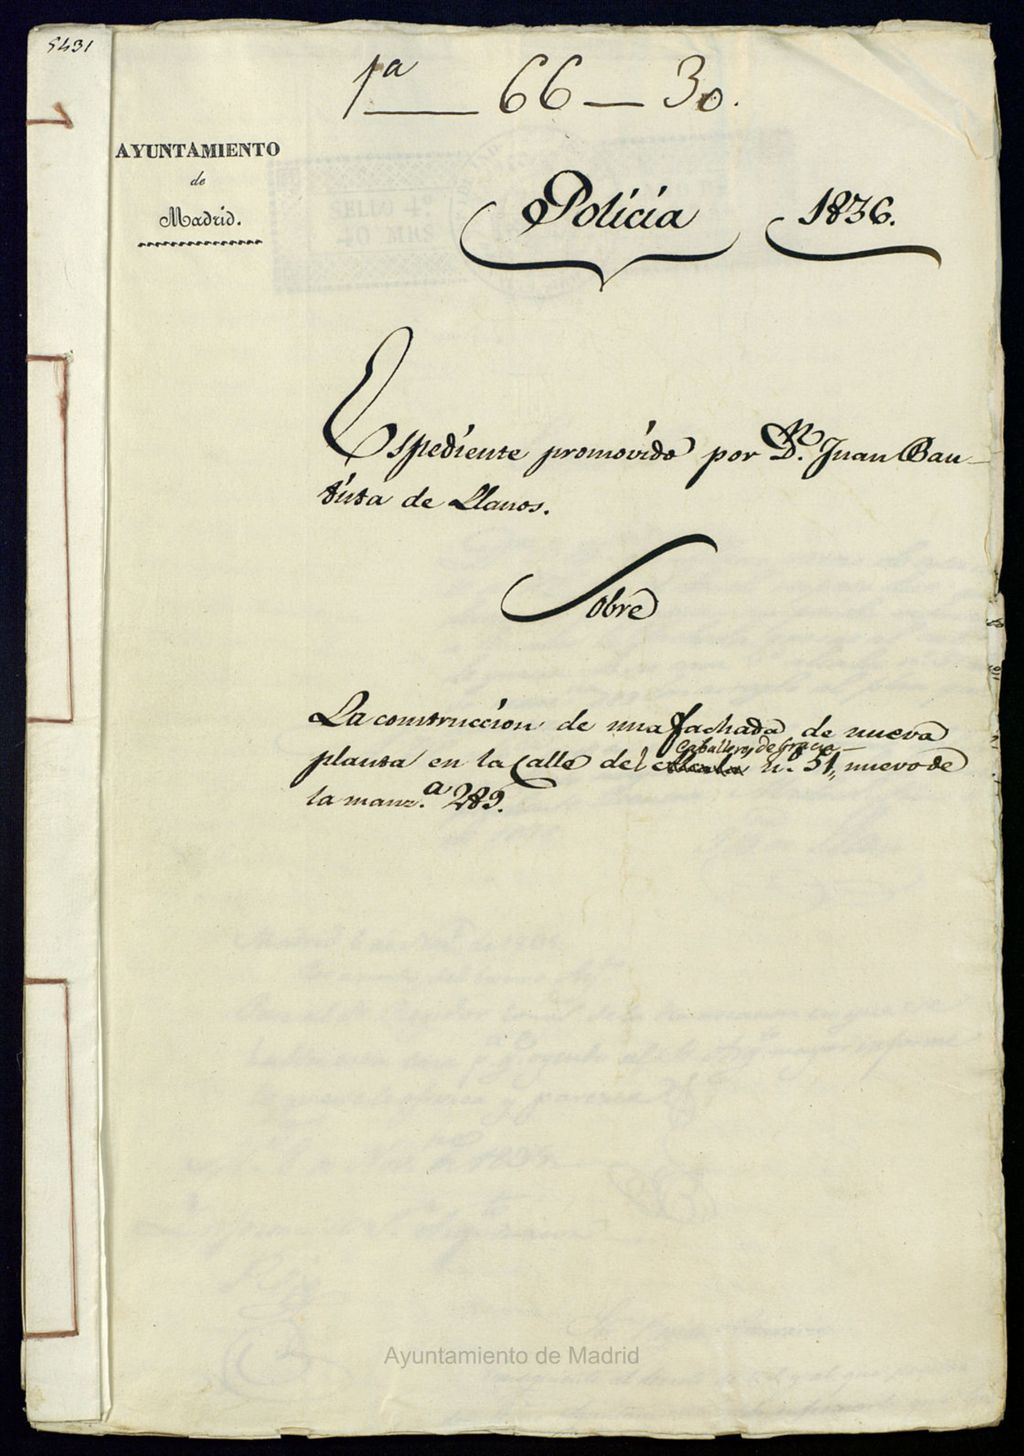 5431
1ª — 66 — 30.
AYUNTAMIENTO
de
Madrid.
SELLO 4º
40 MRS
Policia 1836.
Espediente promovido por Dn. Juan Bau-
tista de Llanos.
Sobre
La construccion de una fachada de nueva
Caballero de Gracia
planta en la Calle del n.º 51, nuevo de
la manz.ª 289.
Ayuntamiento de Madrid